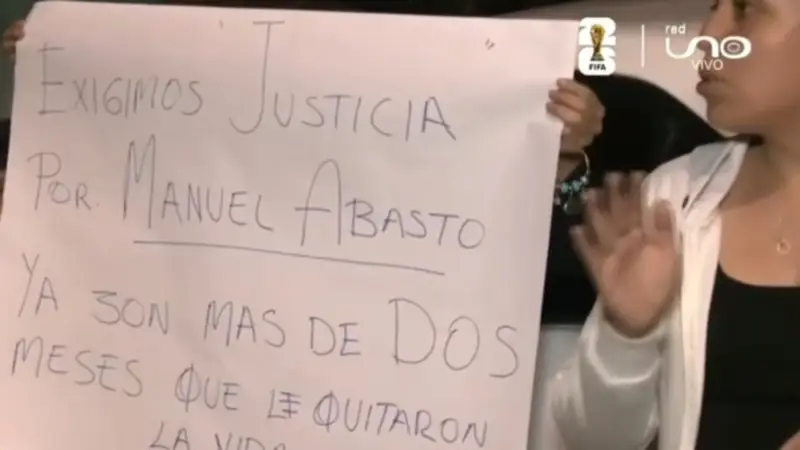 EXIGIMOS JUSTICIA
POR. MANUEL ABASTO
YA SON MAS DE DOS
MESES QUE LE QUITARON
LA VIDA
FIFA
red
UNO
VIVO